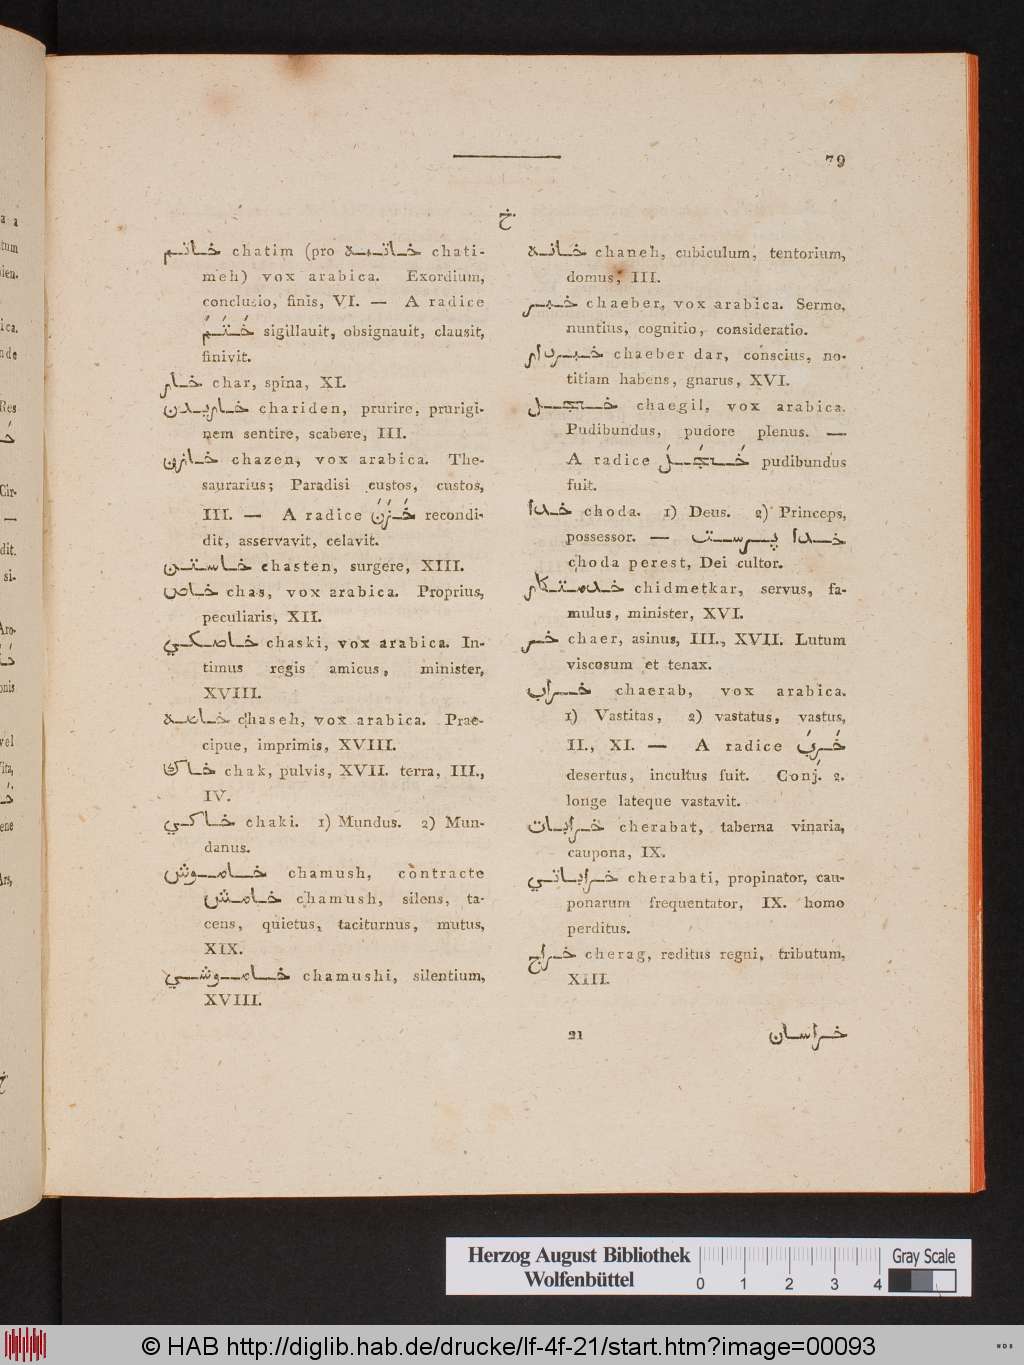 79
خ
خاتم chatim (pro خاتمه chati-
meh) vox arabica. Exordium,
conclusio, finis, VI. — A radice
خَتَمَ sigillauit, obsignauit, clausit,
finivit.
خار char, spina, XI.
خاریدن chariden, prurire, prurigi-
nem sentire, scabere, III.
خازن chazen, vox arabica. The-
saurarius; Paradisi custos, custos,
III. — A radice خَزَنَ recondi-
dit, asservavit, celavit.
خاستن chasten, surgere, XIII.
خاص chas, vox arabica. Proprius,
peculiaris, XII.
خاصكي chaski, vox arabica. In-
timus regis amicus, minister,
XVIII.
خاصه chaseh, vox arabica. Prae-
cipue, imprimis, XVIII.
خاك chak, pulvis, XVII. terra, III.,
IV.
خاكي chaki. 1) Mundus. 2) Mun-
danus.
خاموش chamush, contracte
خامش chamush, silens, ta-
cens, quietus, taciturnus, mutus,
XIX.
خاموشي chamushi, silentium,
XVIII.
خانه chaneh, cubiculum, tentorium,
domus, III.
خبر chaeber, vox arabica. Sermo,
nuntius, cognitio, consideratio.
خبردار chaeber dar, conscius, no-
titiam habens, gnarus, XVI.
خجل chaegil, vox arabica.
Pudibundus, pudore plenus. —
A radice خَجَلَ pudibundus
fuit.
خدا choda. 1) Deus. 2) Princeps,
possessor. — خدا پرست
choda perest, Dei cultor.
خدمتكار chidmetkar, servus, fa-
mulus, minister, XVI.
خر chaer, asinus, III., XVII. Lutum
viscosum et tenax.
خراب chaerab, vox arabica.
1) Vastitas, 2) vastatus, vastus,
II., XI. — A radice خَرِبَ
desertus, incultus fuit. Conj. 2.
longe lateque vastavit.
خرابات cherabat, taberna vinaria,
caupona, IX.
خراباتي cherabati, propinator, cau-
ponarum frequentator, IX. homo
perditus.
خراج cherag, reditus regni, tributum,
XIII.
21 خراسان
Herzog August Bibliothek
Wolfenbüttel
0 1 2 3 4
Gray Scale
© HAB http://diglib.hab.de/drucke/lf-4f-21/start.htm?image=00093